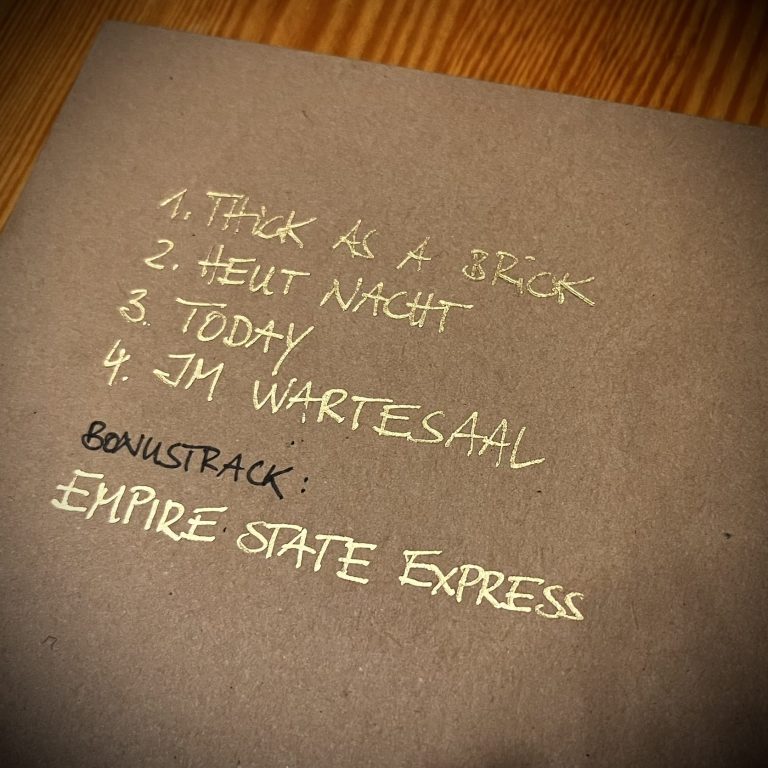 1. THiCK AS A BRiCK
2. HEUT NACHT
3. TODAY
4. IM WARTESAAL
BONUSTRACK:
EMPIRE STATE EXPRESS